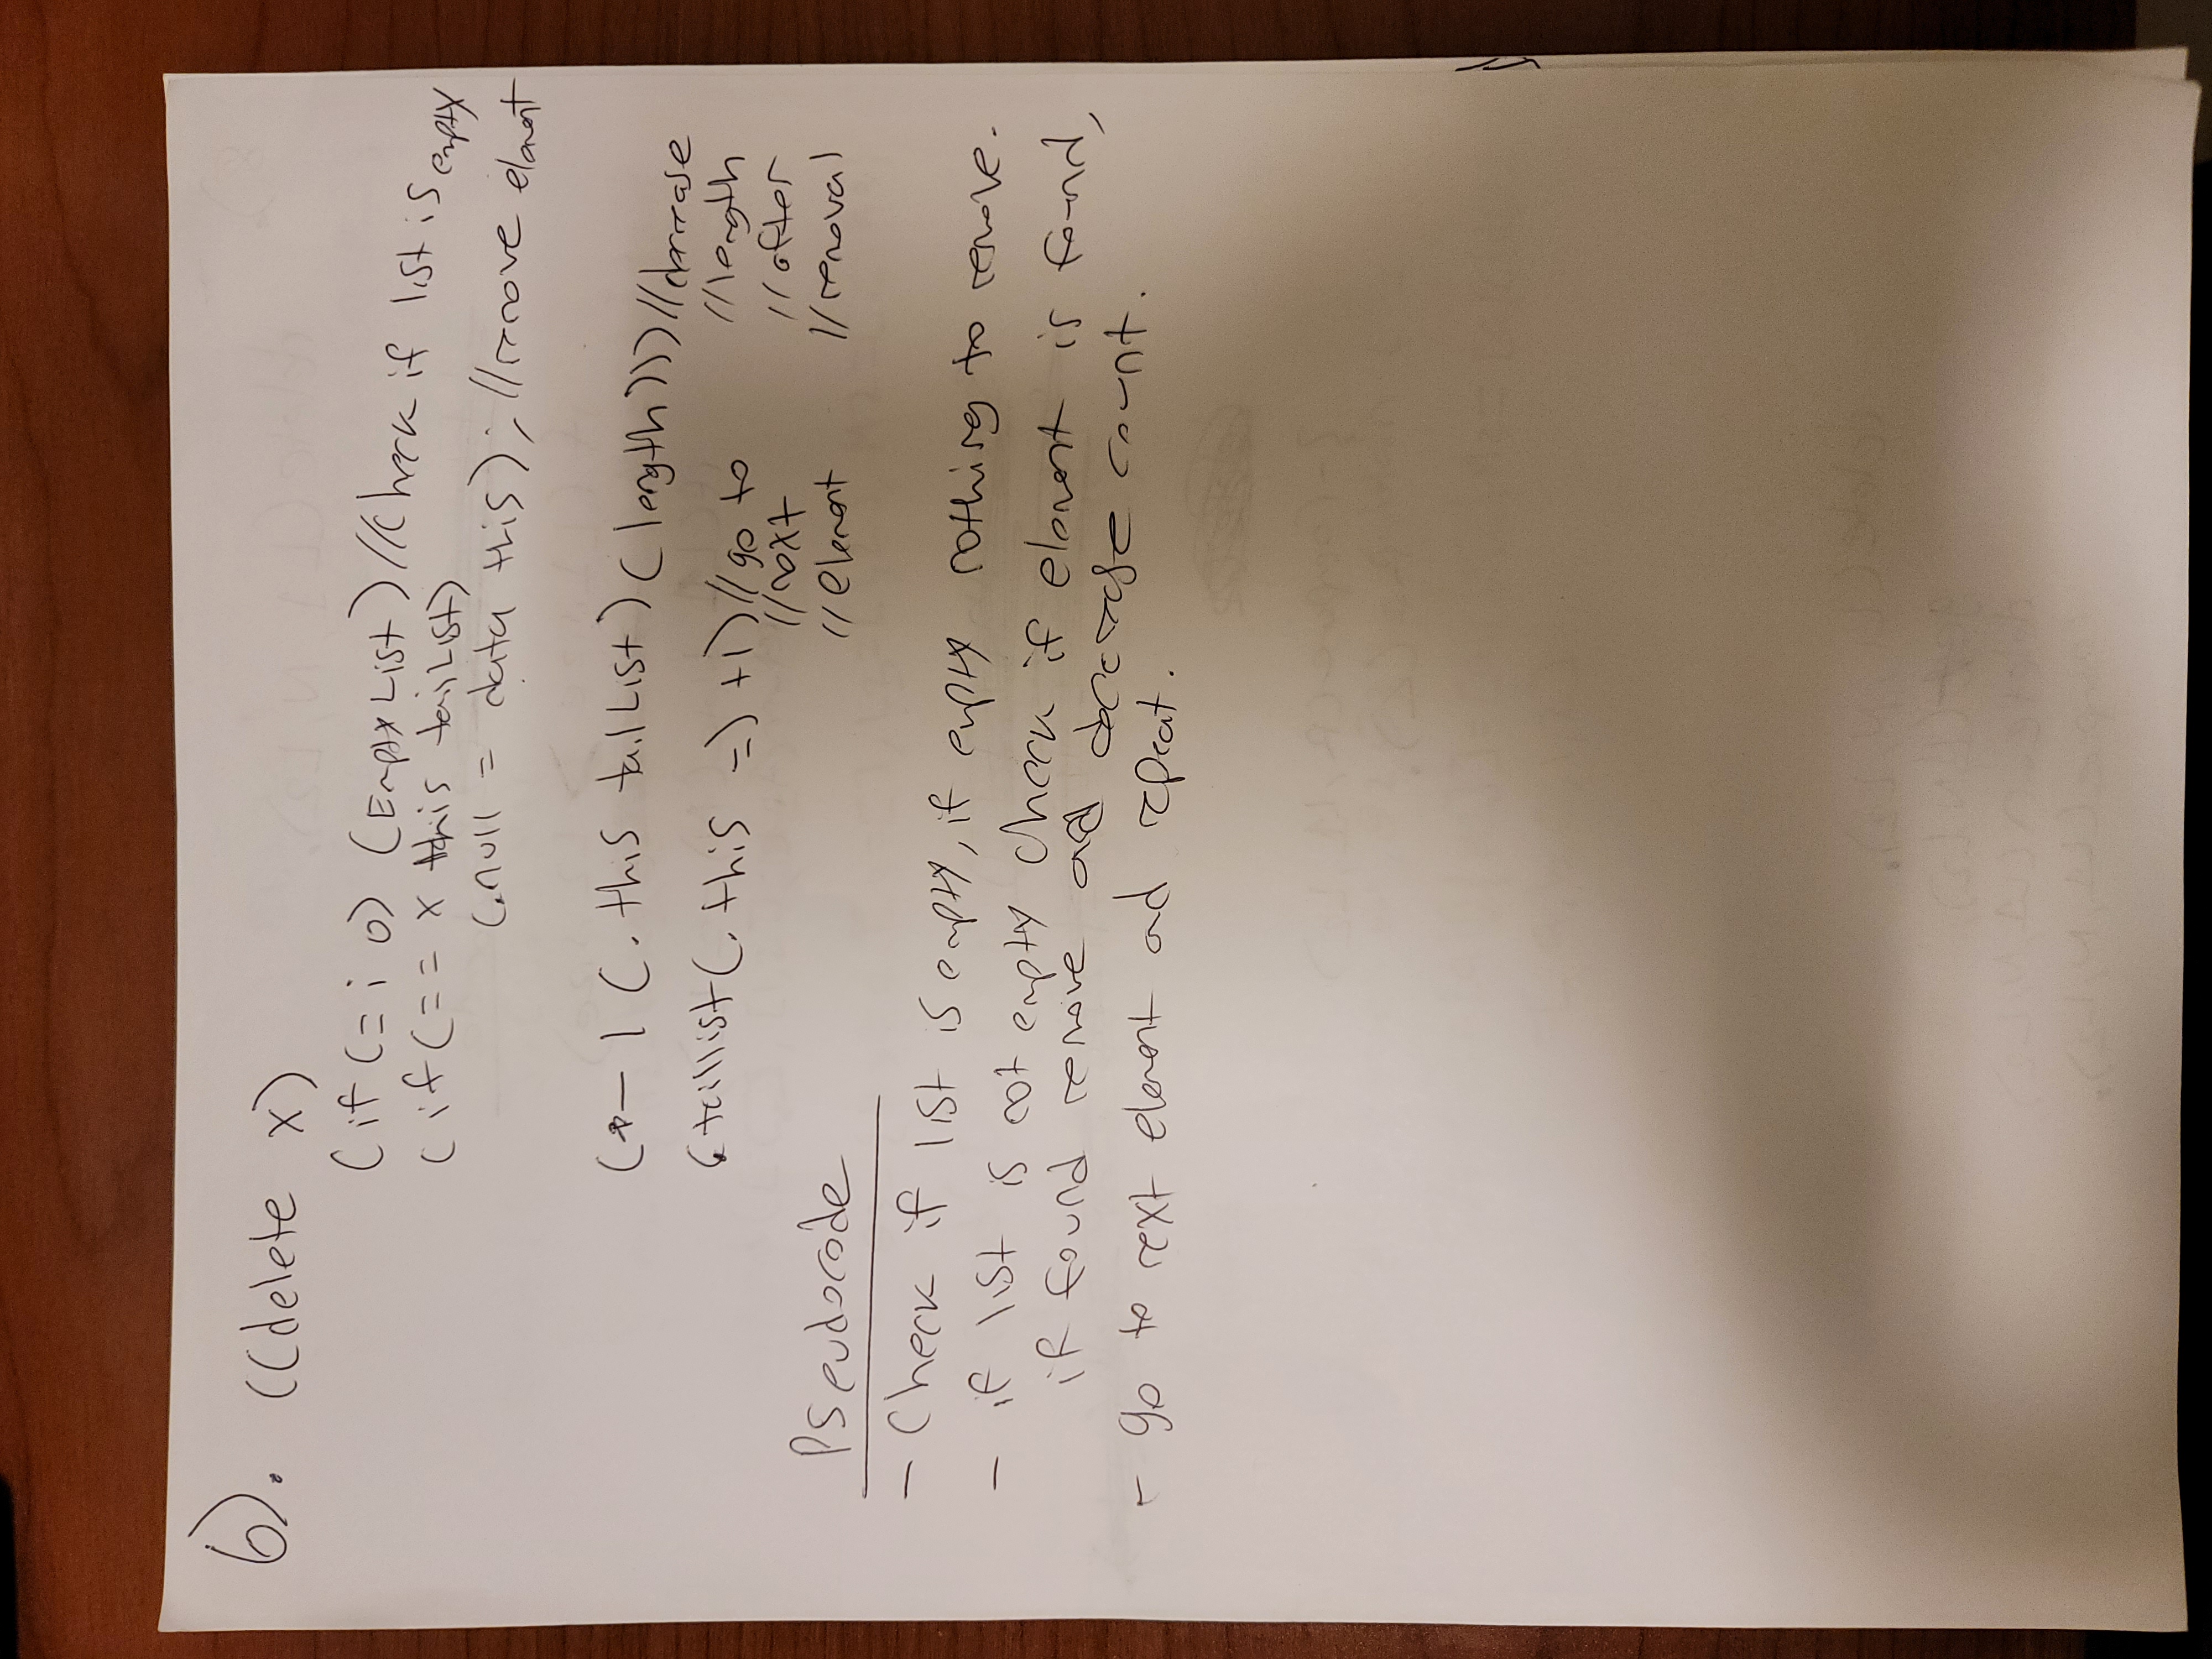 6). ((delete x)
(if (= i 0) (Empty List) //Check if list is empty
(if (== x this tailList)
(.null = data this); //remove element
(- 1 (. this tailList) (length))) //decrease
(taillist (. this =) +1) //go to //length
//next //after
//element //removal
Pseudocode
- Check if list is empty, if empty nothing to remove.
- if list is not empty check if element is found,
if found remove and decrease count.
- go to next element and repeat.